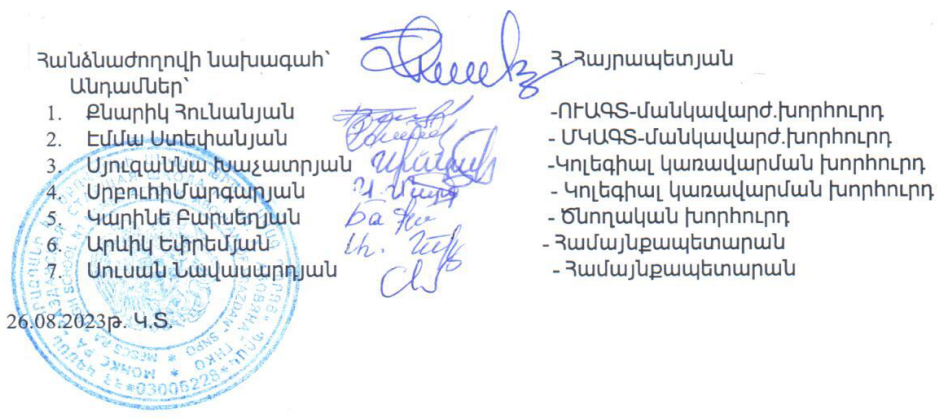 Հանձնաժողովի նախագահ՝ Հ. Հայրապետյան
Անդամներ՝
1. Քնարիկ Հունանյան -ՈՒԱԳՏ-մանկավարժ.խորհուրդ
2. Էմմա Ստեփանյան - ՄԿԱԳՏ-մանկավարժ.խորհուրդ
3. Սյուզաննա Խաչատրյան -Կոլեգիալ կառավարման խորհուրդ
4. ՍրբուհիՄարգարյան - Կոլեգիալ կառավարման խորհուրդ
5. Կարինե Բարսեղյան - Ծնողական խորհուրդ
6. Արևիկ Եփրեմյան - Համայնքապետարան
7. Սուսան Նավասարդյան - Համայնքապետարան
26.08.2023թ. Կ.Տ.
*03006228*